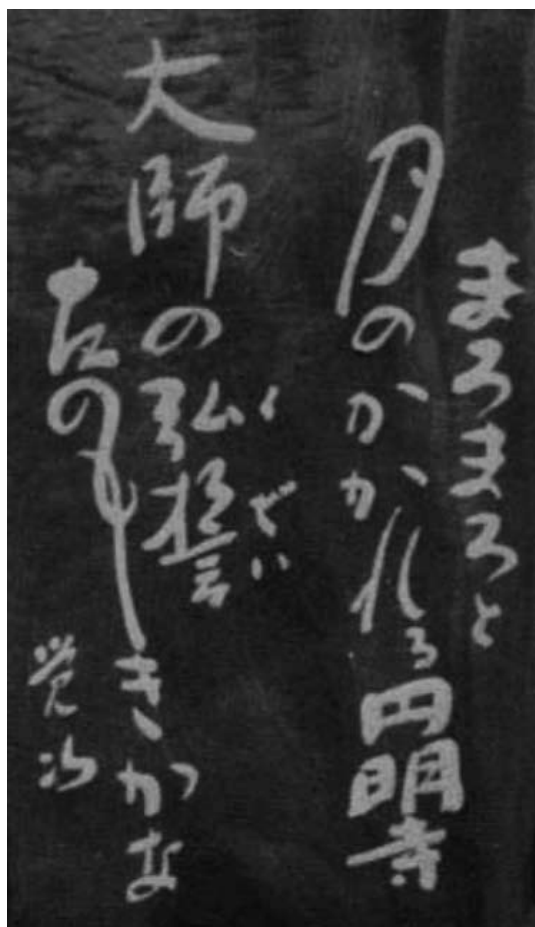 まろまろと
月のかかれる円明寺
大師の弘誓
くぜい
たのもしきかな